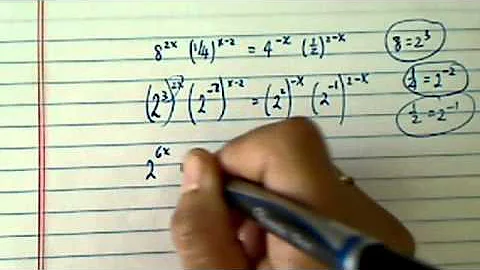 8^{2x} (1/4)^{x-2} = 4^{-x} (1/2)^{2-x}
8 = 2^3
(2^3)^{2x} (2^{-2})^{x-2} = (2^2)^{-x} (2^{-1})^{2-x}
1/4 = 2^{-2}
1/2 = 2^{-1}
2^{6x}